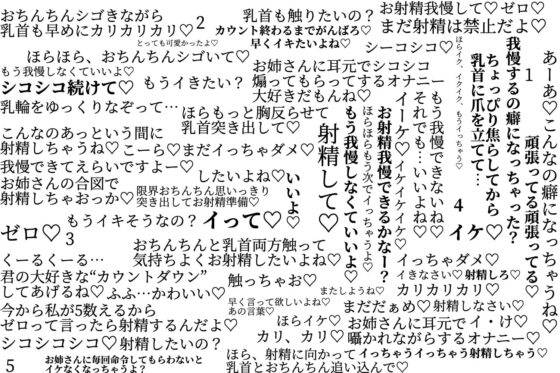 おちんちんシゴきながら
乳首も早めにカリカリカリ♡
2
とっても可愛かったよ♡
乳首も触りたいの？
カウント終わるまでがんばろ♡
早くイキたいよね♡
お射精我慢して♡ゼロ♡
まだ射精は禁止だよ♡
シーコシコ♡
ほらほら、おちんちんシゴいて♡
もう我慢しなくていいよ♡
シコシコ続けて♡
もうイキたい？
お姉さんに耳元でシコシコ
煽ってもらってするオナニー
大好きだもんね♡
乳輪をゆっくりなぞって…
ほらもっと胸反らせて
乳首突き出して♡
こんなのあっという間に
射精しちゃうね♡
こーら♡まだイっちゃダメ♡
我慢できてえらいですよー♡
お姉さんの合図で
射精しちゃおっか♡
したいよね♡
限界おちんちん思いっきり
突き出してお射精準備♡
もうイキそうなの？
イって♡
いいよ♡
射精して♡
もう我慢しなくていいよ♡
ほらほらもう次でイっちゃうよ♡
お射精我慢できるかなー？
イーケ♡イケイケイケ♡
それでも…いいよね♡
もう我慢できないね♡
ほらイク、イクイク、もうイっちゃう♡
乳首に爪を立てて…
ちょっぴり焦らしてから
我慢するの癖になっちゃった？
1
頑張ってる頑張ってる♡
あーあ♡こんなの癖になっちゃうね♡
4
イケ♡
ゼロ♡
3
おちんちんと乳首両方触って
気持ちよくお射精したいよね♡
くーるくーる…
君の大好きな“カウントダウン”
してあげるね♡
ふふ…かわいい♡
触っちゃお♡
イっちゃダメ♡
イきなさい♡
射精しろ♡
またしようね♡
カリカリカリ♡
今から私が5数えるから
ゼロって言ったら射精するんだよ♡
シコシコシコ♡
射精したいの？
早く言って欲しいよね♡
あの言葉♡
まだだぁめ♡
射精しなさい♡
ほらイケ♡
カリ、カリ♡
お姉さんに耳元でイ・け♡
囁かれながらするオナニー♡
5
お姉さんに毎回命令してもらわないと
イケなくなっちゃうよ？
ほら、射精に向かってイっちゃうイっちゃう射精しちゃう♡
乳首とおちんちん追い込んで♡